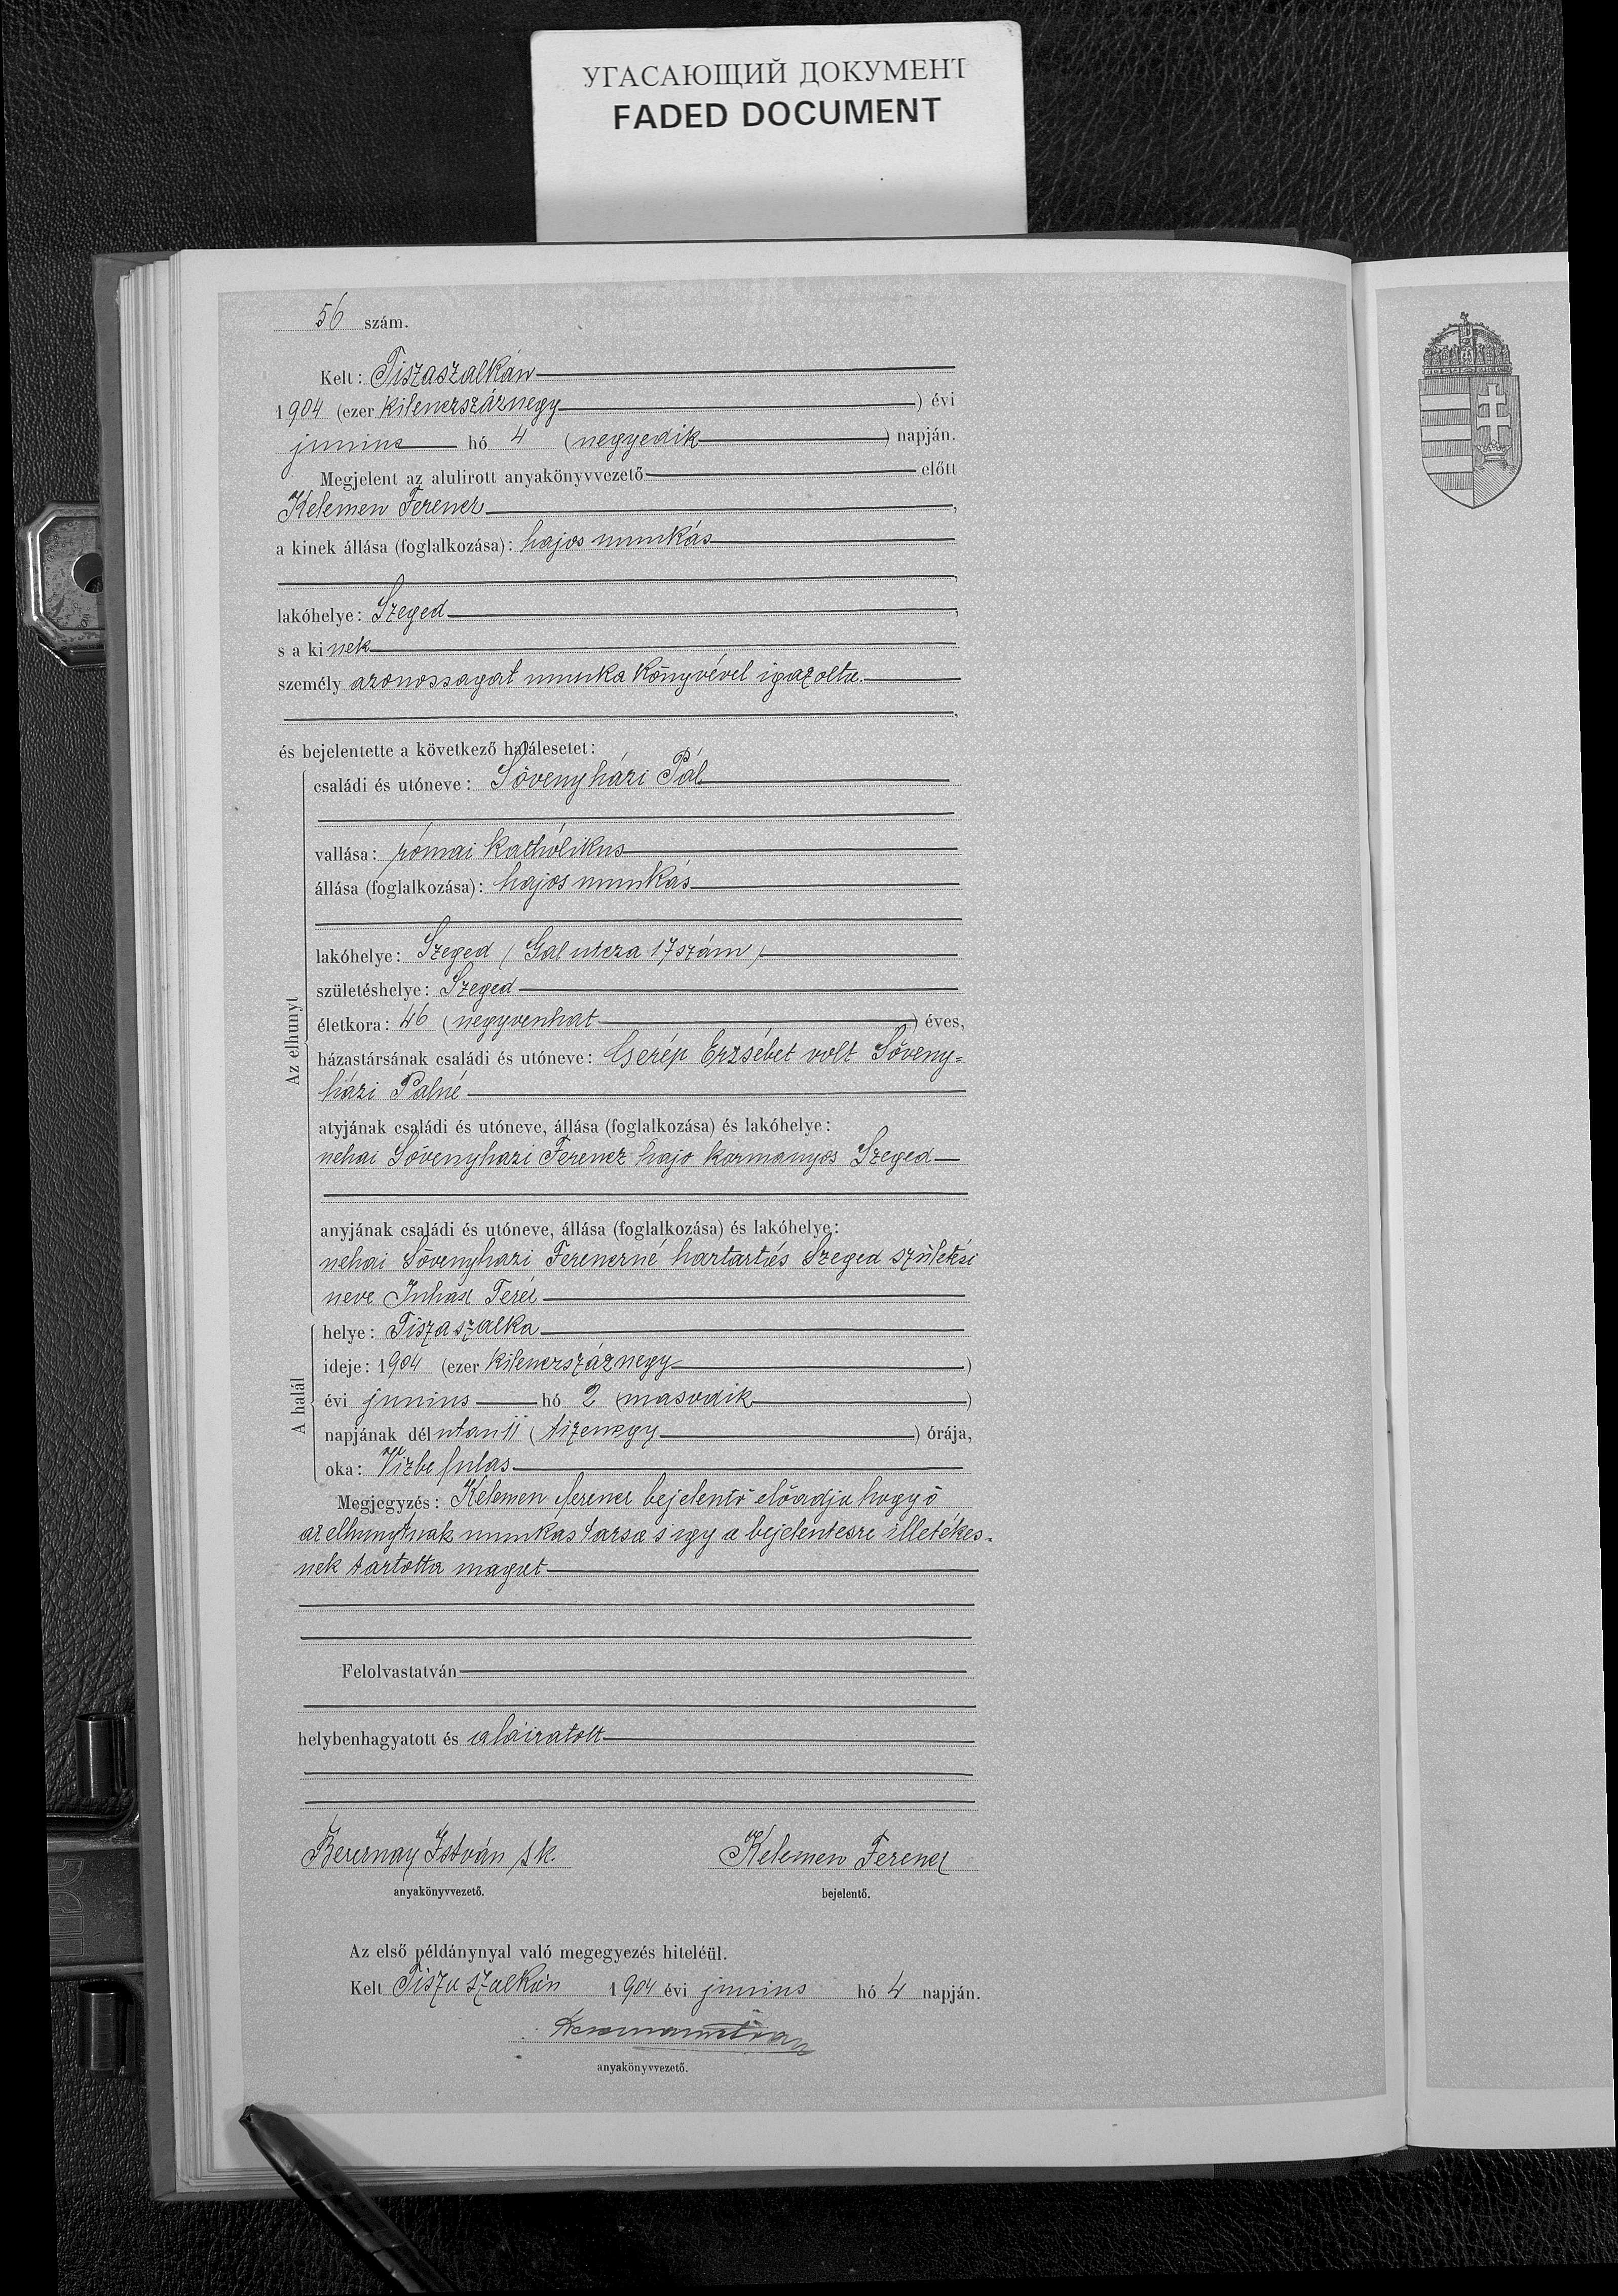 УГАСАЮЩИЙ ДОКУМЕНТ
FADED DOCUMENT
56 szám.
Kelt: Tiszaszalkán
1904 (ezer kilenczszáznegy) évi
junius hó 4 (negyedik) napján.
Megjelent az alulirott anyakönyvvezető előtt
Kelemen Ferencz,
a kinek állása (foglalkozása): hajos munkás
,
lakóhelye: Szeged,
s a kinek
személy azonossagat munka könyvével igazolta.
,
és bejelentette a következő halálesetet:
Az elhunyt
családi és utóneve: Sövenyházi Pál
vallása: római kathólikus
állása (foglalkozása): hajos munkás
lakóhelye: Szeged (Gal utcza 17 szám)
születéshelye: Szeged
életkora: 46 (negyvenhat) éves,
házastársának családi és utóneve: Cserép Erzsébet volt Söveny=
házi Palné
atyjának családi és utóneve, állása (foglalkozása) és lakóhelye:
nehai Sövenyhazi Ferencz hajo kormanyos Szeged
anyjának családi és utóneve, állása (foglalkozása) és lakóhelye:
nehai Sövenyhazi Ferenczné haztartás Szeged születési
neve Juhasz Teréz
A halál
helye: Tiszaszalka
ideje: 1904 (ezer kilenczszáznegy)
évi junius hó 2 (masodik)
napjának délutan 11 (tizenegy) órája,
oka: Vizbe fulas
Megjegyzés: Kelemen ferencz bejelentő előadja hogy ő
az elhunytnak munkástarsa s igy a bejelentesre illetékes-
nek tartotta magat
Felolvastatván
helybenhagyatott és aláiratott
Berernay István s.k.
anyakönyvvezető.
Kelemen Ferencz
bejelentő.
Az első példánynyal való megegyezés hiteléül.
Kelt Tiszaszalkán 1904 évi junius hó 4 napján.
anyakönyvvezető.